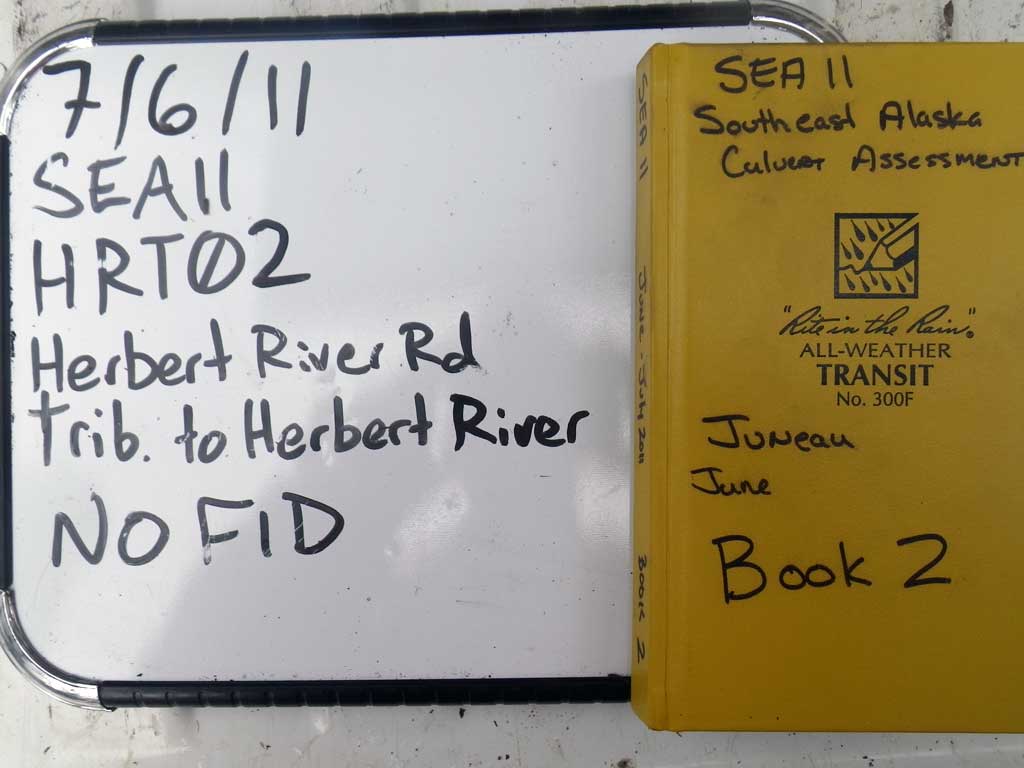 7/6/11
SEA11
HRT02
Herbert River Rd
Trib. to Herbert River
NO FID
SEA 11
June - July 2011
Book 2
SEA 11
Southeast Alaska
Culvert Assessment
"Rite in the Rain"®
ALL-WEATHER
TRANSIT
No. 300F
Juneau
June
Book 2